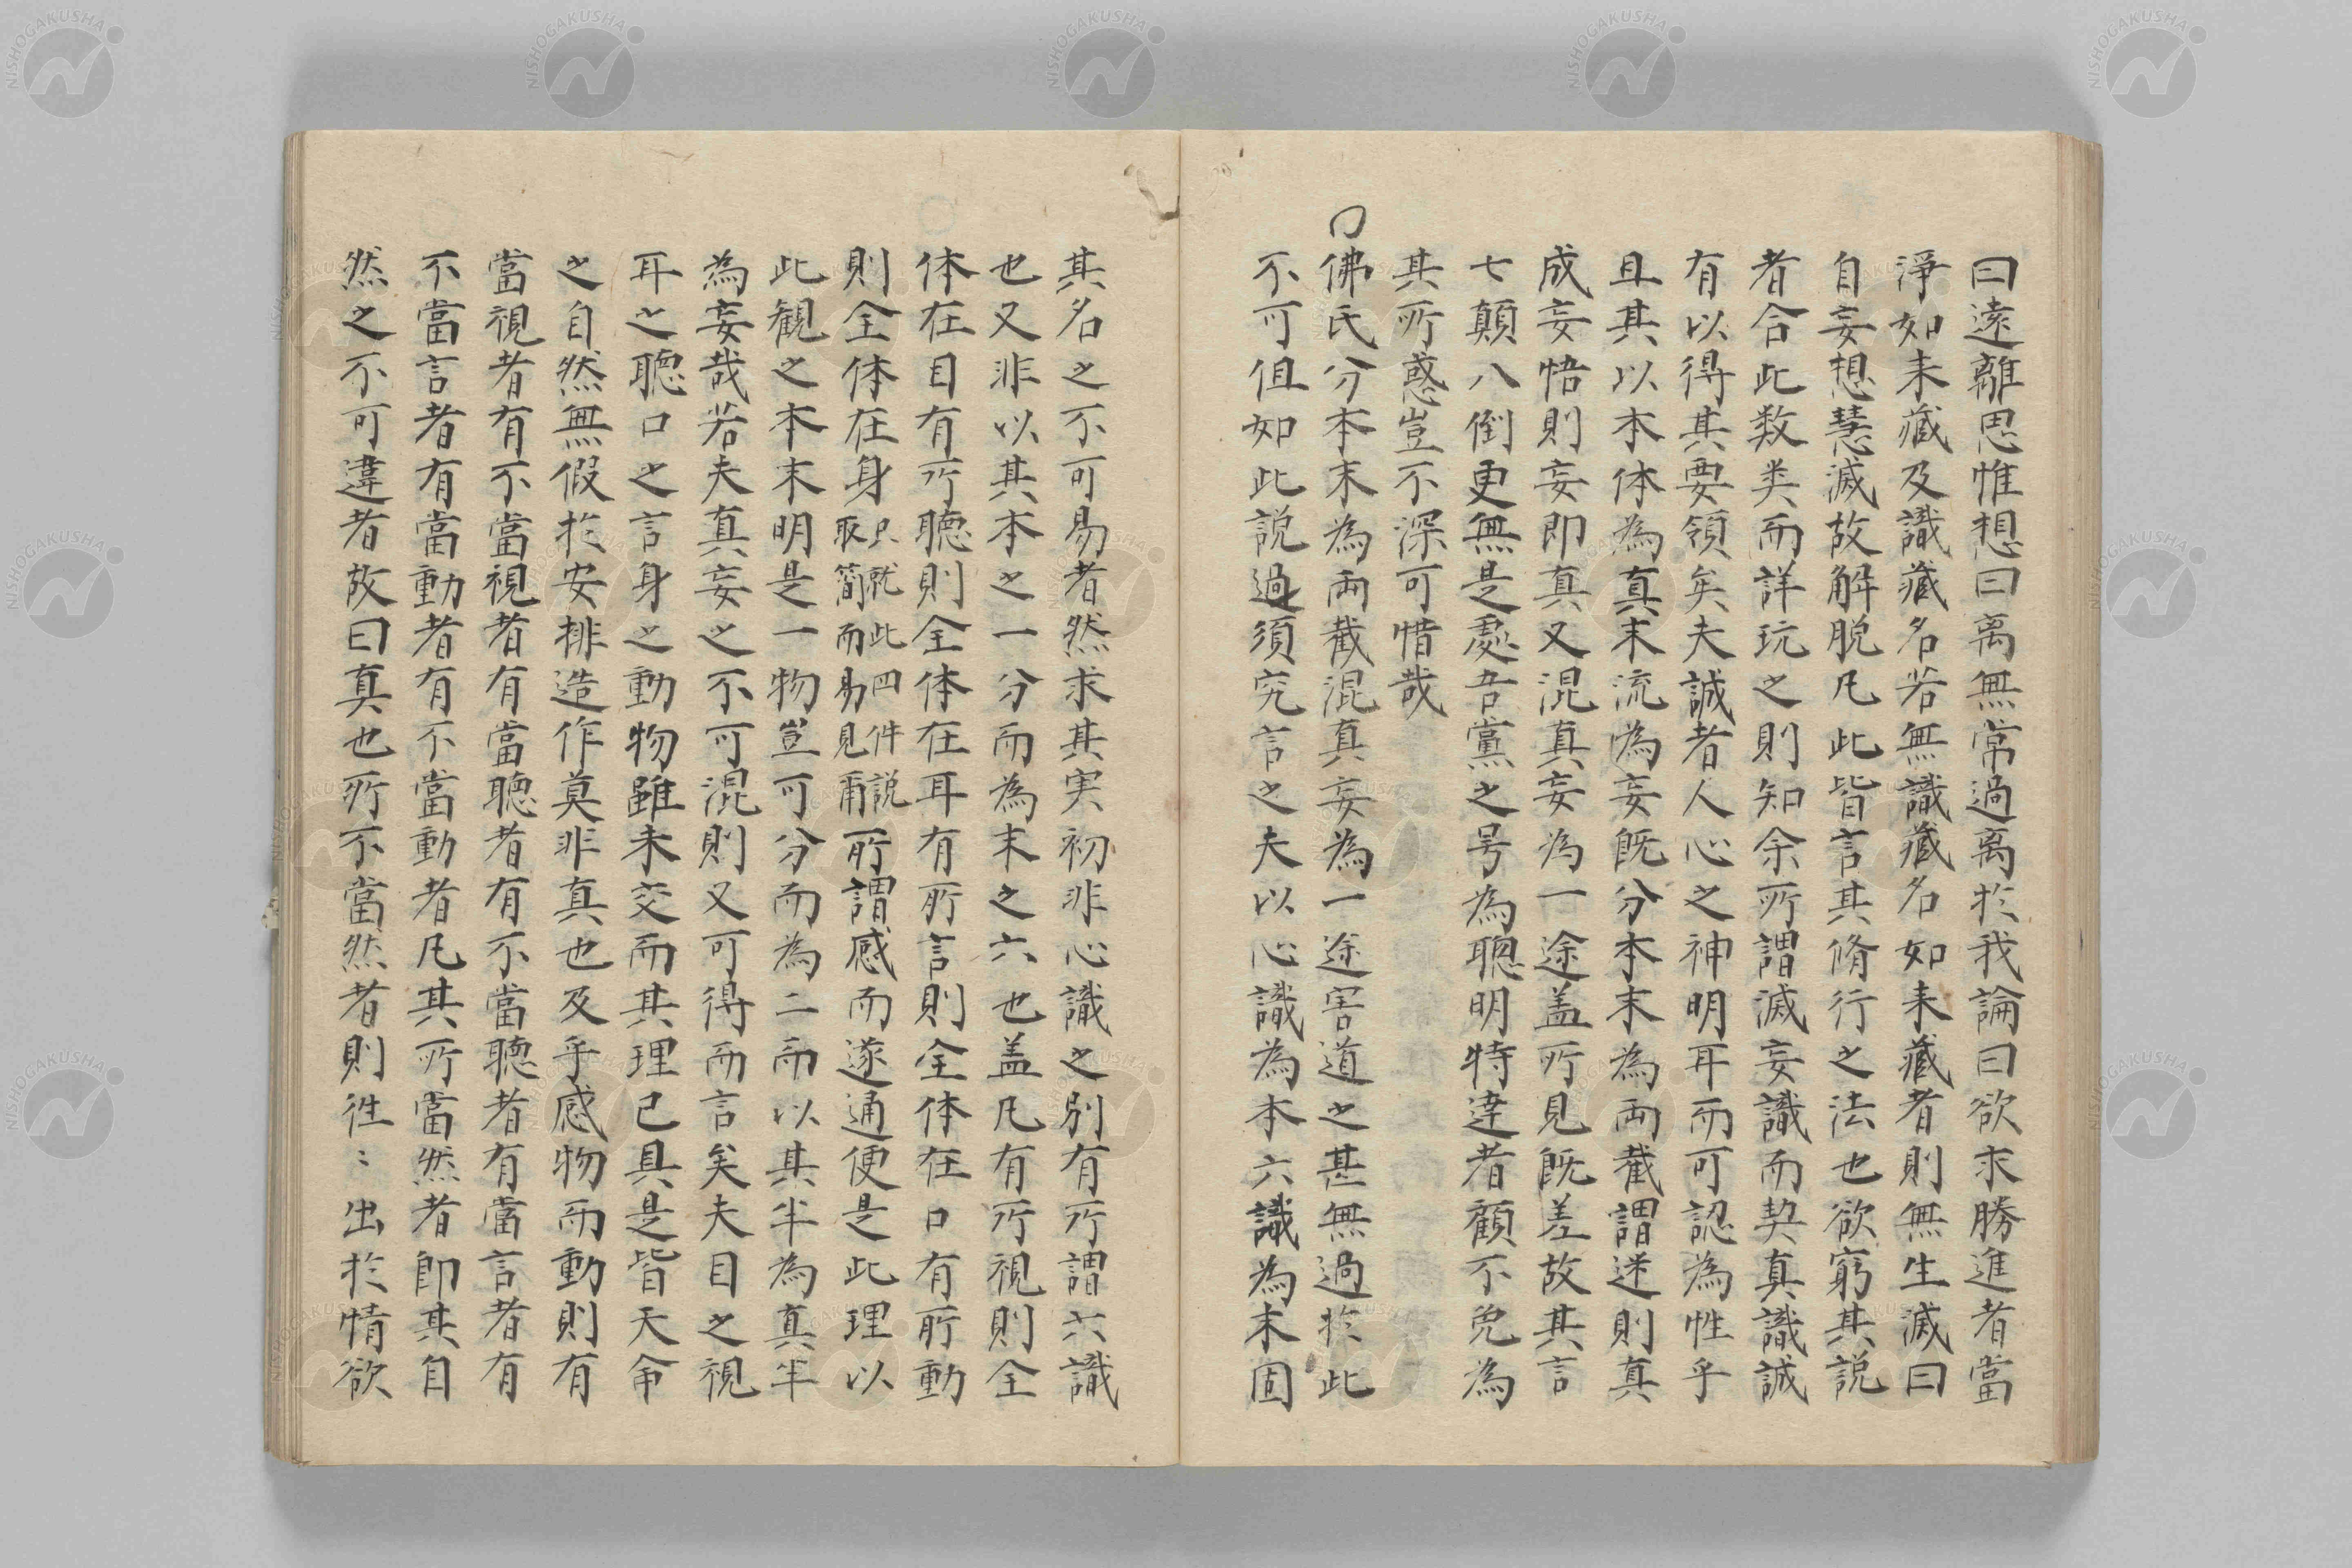 曰遠離思惟想曰离無常過离於我論曰欲求勝進者當
淨如来藏及識藏名若無識藏名如来藏者則無生滅曰
自妄想慧滅故解脱凡此皆言其脩行之法也欲窮其説
者合此数类而詳玩之則知余所謂滅妄識而契真識誠
有以得其要領矣夫誠者人心之神明耳而可認為性乎
且其以本体為真末流為妄既分本末為両截謂迷則真
成妄悟則妄即真又混真妄為一途盖所見既差故其言
七顛八倒更無是處吾黨之号為聰明特達者顧不免為
其所惑豈不深可惜哉
佛氏分本末為両截混真妄為一途害道之甚無過於此
不可但如此説過須究言之夫以心識為本六識為末固
其名之不可易者然求其実初非心識之別有所謂六識
也又非以其本之一分而為末之六也盖凡有所視則全
体在目有所聽則全体在耳有所言則全体在口有所動
則全体在身只就此四件説取簡而易見甭所謂感而遂通便是此理以
此観之本末明是一物豈可分而為二而以其半為真半
為妄哉若夫真妄之不可混則又可得而言矣夫目之視
耳之聽口之言身之動物雖未交而其理已具是皆天命
之自然無假於安排造作莫非真也及乎感物而動則有
當視者有不當視者有當聽者有不當聽者有當言者有
不當言者有當動者有不當動者凡其所當然者即其自
然之不可違者故曰真也所不當然者則徃〻出於情欲
NISHOGAKUSHA